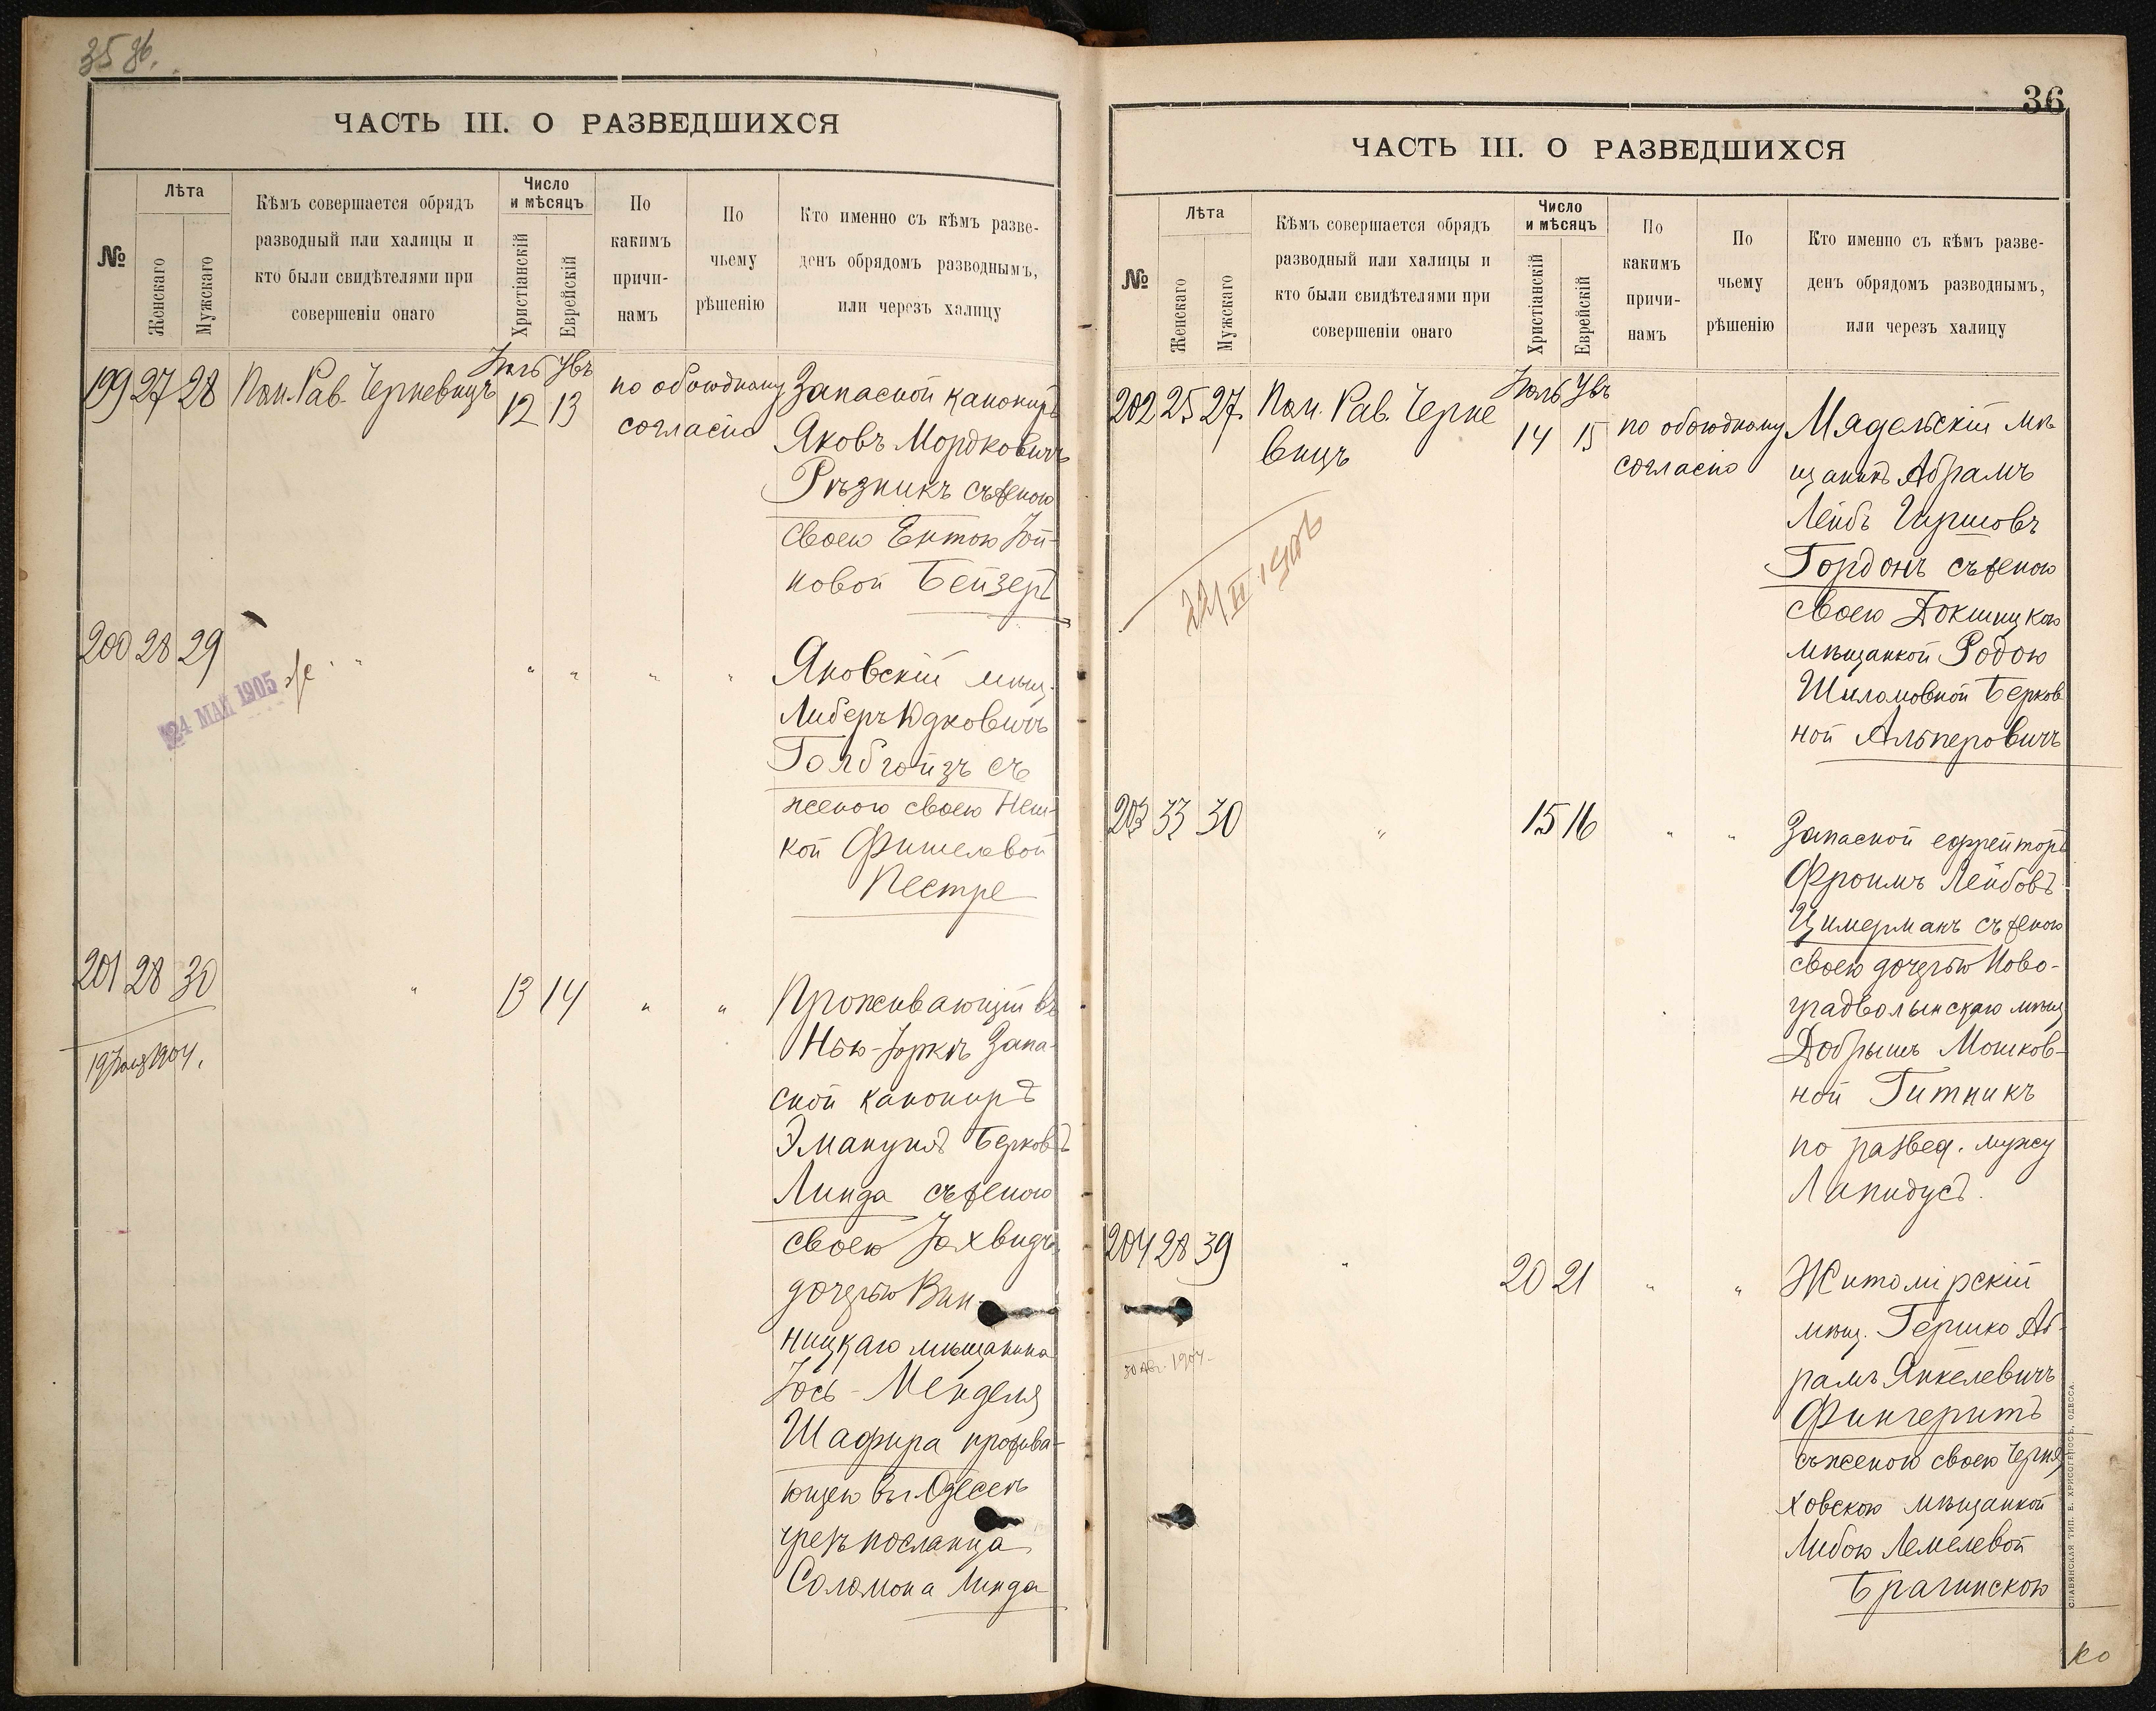 35 об.
ЧАСТЬ III. О РАЗВЕДШИХСЯ
№
Лѣта
Женскаго
Мужскаго
Кѣмъ совершается обрядъ
разводный или халицы и
кто были свидѣтелями при
совершеніи онаго
Число
и мѣсяцъ
Христіанскій
Еврейскій
По
какимъ
причи-
намъ
По
чьему
рѣшенію
Кто именно съ кѣмъ разве-
денъ обрядомъ разводнымъ,
или черезъ халицу
199 27 28 Пом. Рав. Черневицъ
12 13
по обоюдному
согласію
Запасной канониръ
Яковъ Мордковичъ
Рѣзникъ съ женою
своею Ентою
новой Бейзеръ
200 28 29
24 МАЙ 1905
" " " "
Яновскій мѣщ.
Либеръ Юдковичъ
съ
женою своею Неш-
кой Фишелевой
Пестре
201 28 30
"
13 14
" "
19 Іюля 1904.
Проживающій въ
Нью-Іоркѣ Запа-
сной канониръ
Эмануилъ Берковъ
Линда съ женою
своею Іохвидъ
дочерью Вин-
ницкаго мѣщанина
Іось-Менделя
Шафира прожива-
ющею въ г. Одессѣ
чрезъ посланца
Соломона Линда
36
ЧАСТЬ III. О РАЗВЕДШИХСЯ
№
Лѣта
Женскаго
Мужскаго
Кѣмъ совершается обрядъ
разводный или халицы и
кто были свидѣтелями при
совершеніи онаго
Число
и мѣсяцъ
Христіанскій
Еврейскій
По
какимъ
причи-
намъ
По
чьему
рѣшенію
Кто именно съ кѣмъ разве-
денъ обрядомъ разводнымъ,
или черезъ халицу
202 25 27. Пом. Рав. Черне
вицъ
14 15
по обоюдному
согласію
Мядельскій мѣ
щанинъ Абрамъ
Лейбъ Гиршовъ
Гордонъ съ женою
своею Докшицкою
мѣщанкой Родою
Шиломовной Берков
ной Альперовичъ
203 33 30
"
15 16
" "
Запасной ефрейторъ
Фроимъ Лейбовъ
Цимерманъ съ женою
своею дочерью Ново-
градволынскаго мѣщ.
Добрышъ Мошков-
ной Гитникъ
по развед. мужу
Лапидусъ.
204 28 39
"
20 21
" "
30 Авг. 1904.
Житомірскій
мѣщ. Гершко Аб-
рамъ Янкелевичъ
Фингеритъ
съ женою своею Черня
ховскою мѣщанкой
Либою Лемелевой
Брагинскою
СЛАВЯНСКАЯ ТИП. Е. ХРИСОГЕЛОСЪ, ОДЕССА.